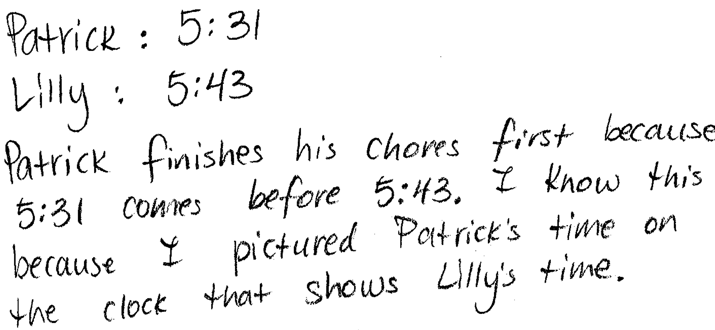 Patrick : 5:31
Lilly : 5:43
Patrick finishes his chores first because
5:31 comes before 5:43. I know this
because I pictured Patrick's time on
the clock that shows Lilly's time.